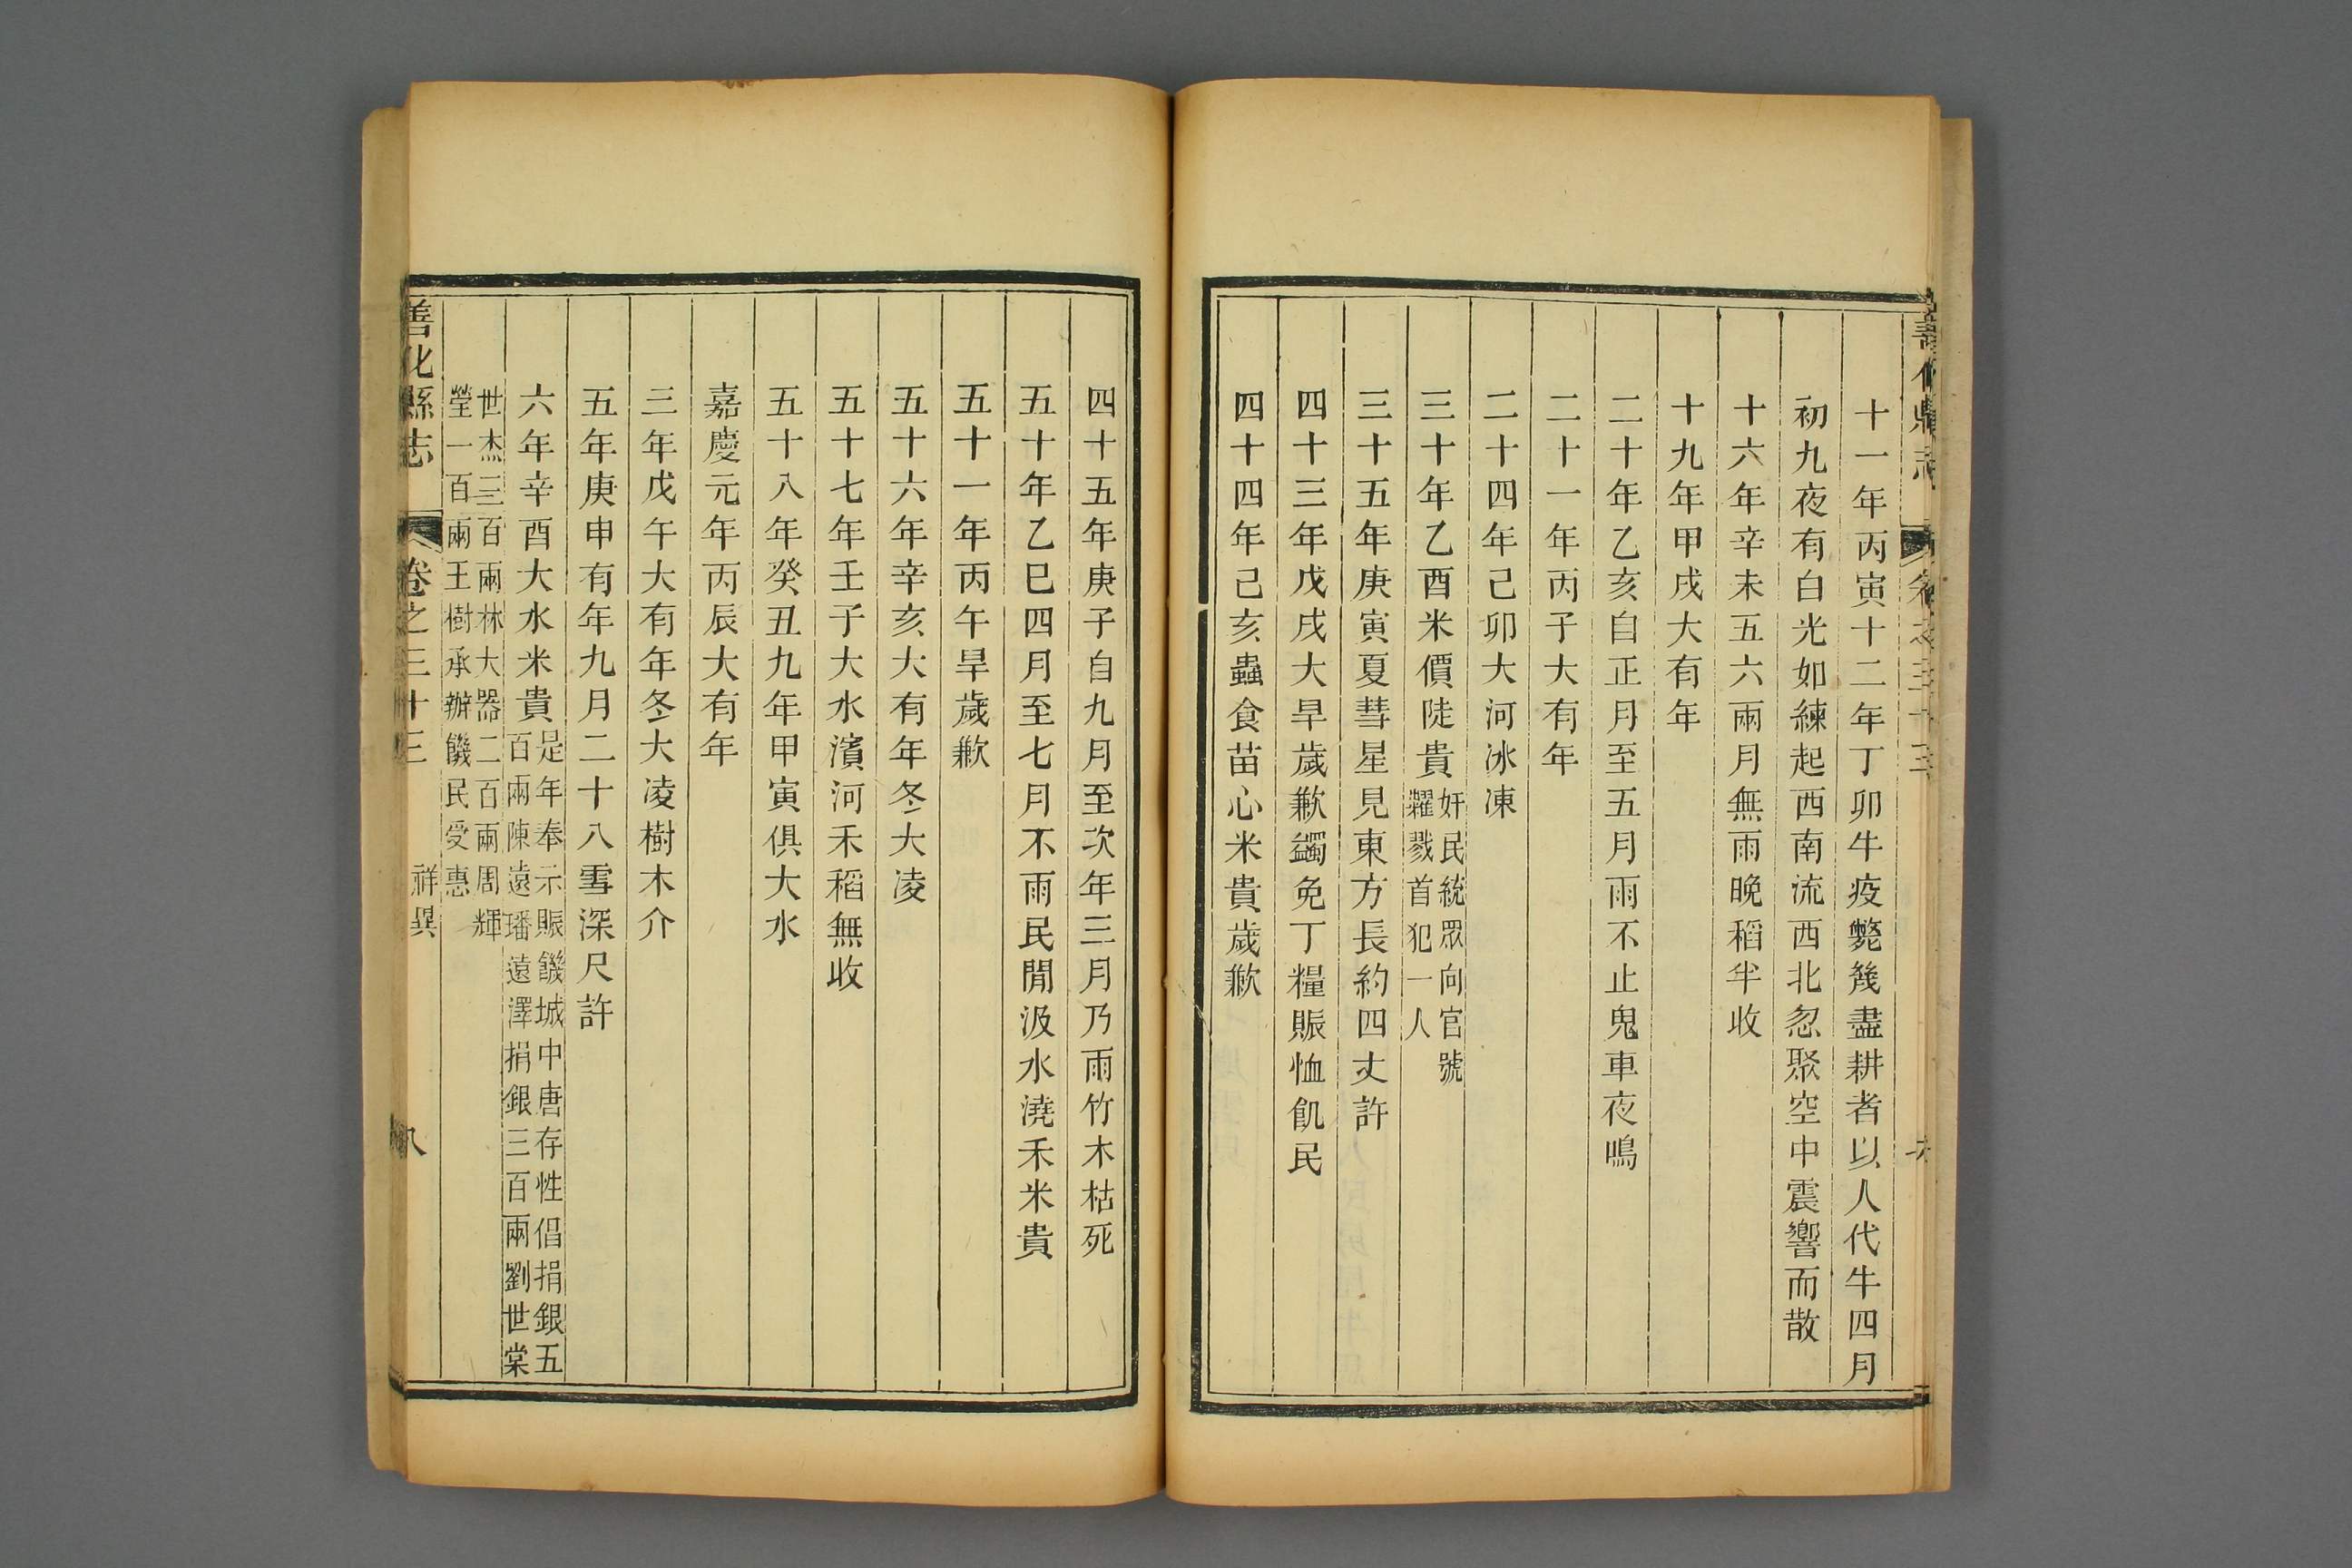 十一年丙寅十二年丁卯牛疫斃幾盡耕者以人代牛四月
初九夜有白光如練起西南流西北忽聚空中震響而散
十六年辛未五六兩月無雨晚稻半收
十九年甲戌大有年
二十年乙亥自正月至五月雨不止鬼車夜鳴
二十一年丙子大有年
二十四年己卯大河冰凍
三十年乙酉米價陡貴奸民統眾向官號
糶戮首犯一人
三十五年庚寅夏彗星見東方長約四丈許
四十三年戊戌大旱歲歉蠲免丁糧賑恤飢民
四十四年己亥蟲食苗心米貴歲歉
四十五年庚子自九月至次年三月乃雨竹木枯死
五十年乙巳四月至七月不雨民閒汲水澆禾米貴
五十一年丙午旱歲歉
五十六年辛亥大有年冬大凌
五十七年壬子大水濱河禾稻無收
五十八年癸丑九年甲寅俱大水
嘉慶元年丙辰大有年
三年戊午大有年冬大凌樹木介
五年庚申有年九月二十八雪深尺許
六年辛酉大水米貴是年奉示賑饑城中唐存性倡捐銀五
百兩陳遠璠遠澤捐銀三百兩劉世棠
世杰三百兩林大器二百兩周輝
瑩一百兩王樹承辦饑民受惠
善化縣志 卷之三十三 祥異 八